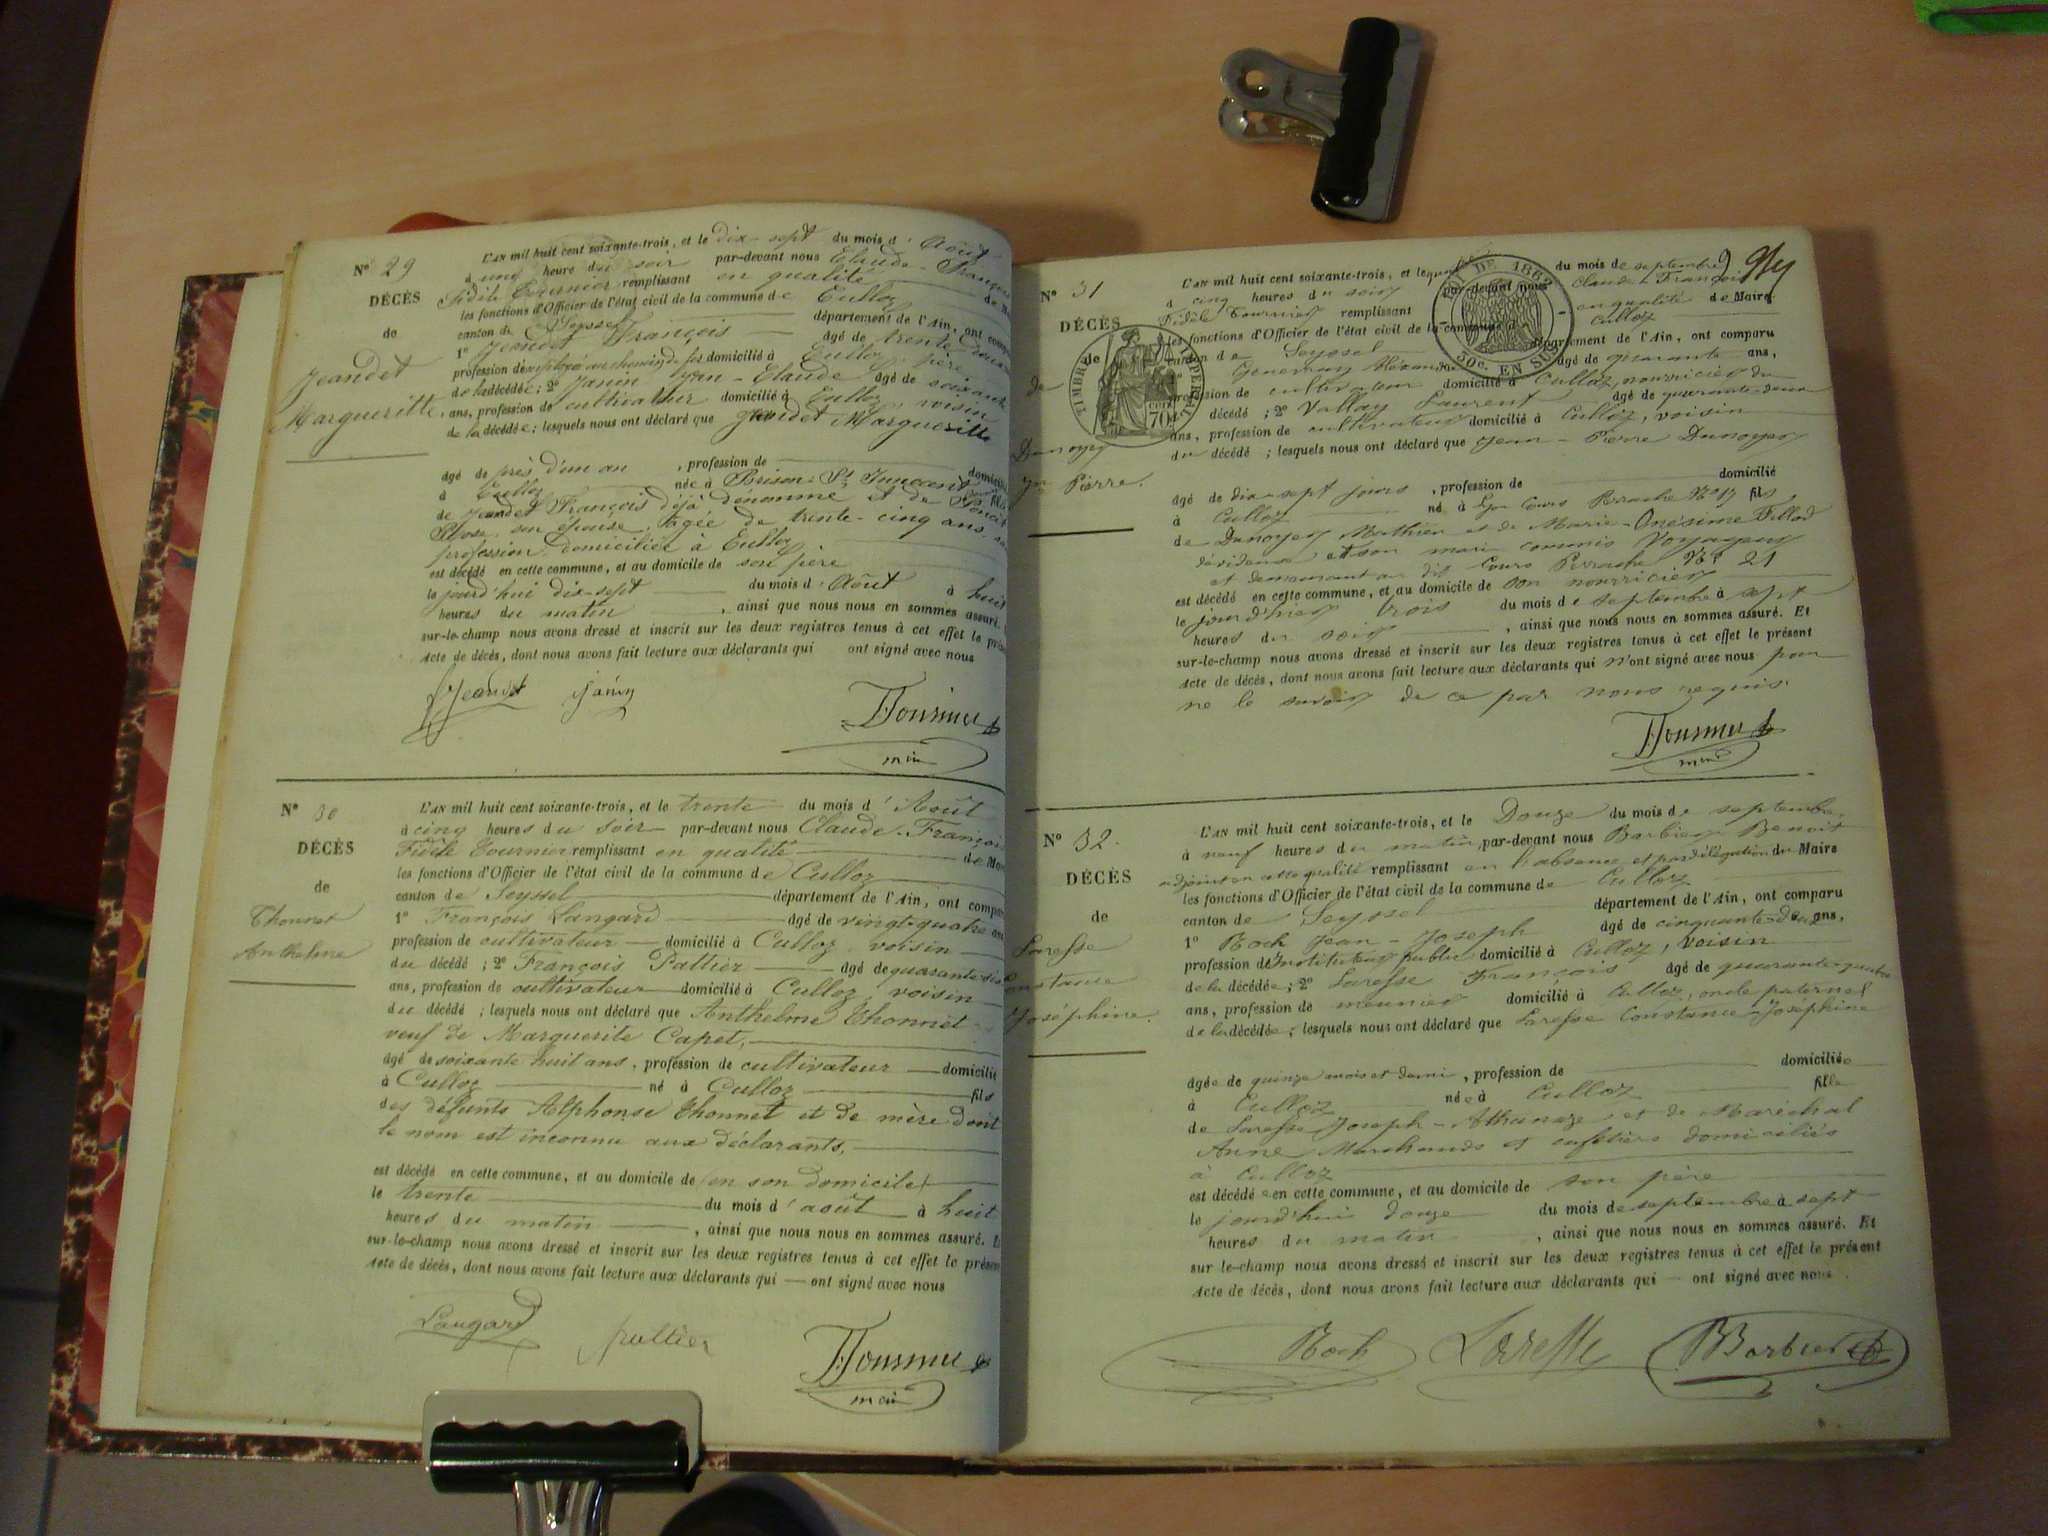 N° 29
DÉCÈS
de
Jeandet
Margueritte
L'AN mil huit cent soixante-trois, et le dix-sept du mois d'Août
à une heure du soir par-devant nous Claude-François
Fidèle Tournier remplissant en qualité de
les fonctions d'Officier de l'état civil de la commune de Culloz
canton de Seyssel département de l'Ain, ont
1° Jeandet François âgé de trente
profession d'employé au chemin de fer domicilié à Culloz, père
de la décédée; 2° Janin Jean-Claude âgé de soixante
ans, profession de cultivateur domicilié à Culloz, voisin
de la décédée; lesquels nous ont déclaré que Jeandet Margueritte
âgé de près d'un an, profession de
à Culloz née à Brison-St Innocent
de Jeandet François déjà dénommé et de
Rose son épouse, âgée de trente-cinq ans,
profession domiciliée à Culloz
est décédé en cette commune, et au domicile de son père
le jourd'hui dix-sept du mois d'Août à huit
heures du matin, ainsi que nous nous en sommes assuré.
sur-le-champ nous avons dressé et inscrit sur les deux registres tenus à cet effet le
acte de décès, dont nous avons fait lecture aux déclarants qui ont signé avec nous
Jeandet Janin Tournier
N° 30
DÉCÈS
de
Thonnet
Anthelme
L'AN mil huit cent soixante-trois, et le trente du mois d'Août
à cinq heures du soir par-devant nous Claude-François
Fidèle Tournier remplissant en qualité de
les fonctions d'Officier de l'état civil de la commune de Culloz
canton de Seyssel département de l'Ain, ont
1° François Langard âgé de vingt-quatre ans
profession de cultivateur domicilié à Culloz voisin
du décédé; 2° François Pallier âgé de quarante
ans, profession de cultivateur domicilié à Culloz, voisin
du décédé; lesquels nous ont déclaré que Anthelme Thonnet
veuf de Marguerite Capet,
âgé de soixante huit ans, profession de cultivateur domicilié
à Culloz né à Culloz fils
des défunts Alphonse Thonnet et de mère dont
le nom est inconnu aux déclarants,
est décédé en cette commune, et au domicile de (en son domicile)
le trente du mois d'août à huit
heures du matin, ainsi que nous nous en sommes assuré.
sur-le-champ nous avons dressé et inscrit sur les deux registres tenus à cet effet le présent
acte de décès, dont nous avons fait lecture aux déclarants qui ont signé avec nous
Langard Pallier Tournier
N° 31
DÉCÈS
de
de
Dunoyer
Jn Pierre.
TIMBRE IMPÉRIAL
70
LOI DE 1862
50c. EN SUS
L'AN mil huit cent soixante-trois, et le du mois de septembre
à cinq heures du soir par-devant nous Claude François
Fidèle Tournier remplissant en qualité de Maire
les fonctions d'Officier de l'état civil de la commune de Culloz
canton de Seyssel département de l'Ain, ont comparu
âgé de quarante ans,
profession de cultivateur domicilié à Culloz, nourricier du
décédé; 2° Vallay Laurent âgé de quarante-deux
ans, profession de cultivateur domicilié à Culloz, voisin
du décédé; lesquels nous ont déclaré que Jean-Pierre Dunoyer
âgé de dix-sept jours, profession de domicilié
à Culloz né à Lyon Cours Perrache N° 17 fils
de Dunoyer Mathieu et de Marie-Onésime Fillod
et son mari commis Voyageur
et demeurant au dit Cours Perrache N° 21
est décédé en cette commune, et au domicile de son nourricier
le jourd'hier trois du mois de septembre à sept
heures du soir, ainsi que nous nous en sommes assuré. Et
sur-le-champ nous avons dressé et inscrit sur les deux registres tenus à cet effet le présent
acte de décès, dont nous avons fait lecture aux déclarants qui n'ont signé avec nous pour
ne le savoir de ce par nous requis.
Tournier
N° 32.
DÉCÈS
de
Laresse
Constance
Joséphine.
L'AN mil huit cent soixante-trois, et le Douze du mois de septembre
à neuf heures du matin, par-devant nous Barbier Benoit
adjoint en cette qualité remplissant en l'absence et par délégation du Maire
les fonctions d'Officier de l'état civil de la commune de Culloz
canton de Seyssel département de l'Ain, ont comparu
1° Roch Jean-Joseph âgé de cinquante-deux ans,
profession d'Instituteur public domicilié à Culloz, voisin
de la décédée; 2° Laresse François âgé de quarante-quatre
ans, profession de meunier domicilié à Culloz, oncle paternel
de la décédée; lesquels nous ont déclaré que Laresse Constance-Joséphine
âgée de quinze mois et demi, profession de domiciliée
à Culloz née à Culloz fille
de Laresse Joseph-Athanaze et de Maréchal
Anne Marchands et cafetiers domiciliés
à Culloz
est décédée en cette commune, et au domicile de son père
le jourd'hui douze du mois de septembre à sept
heures du matin, ainsi que nous nous en sommes assuré. Et
sur le-champ nous avons dressé et inscrit sur les deux registres tenus à cet effet le présent
acte de décès, dont nous avons fait lecture aux déclarants qui ont signé avec nous.
Roch Laresse Barbier